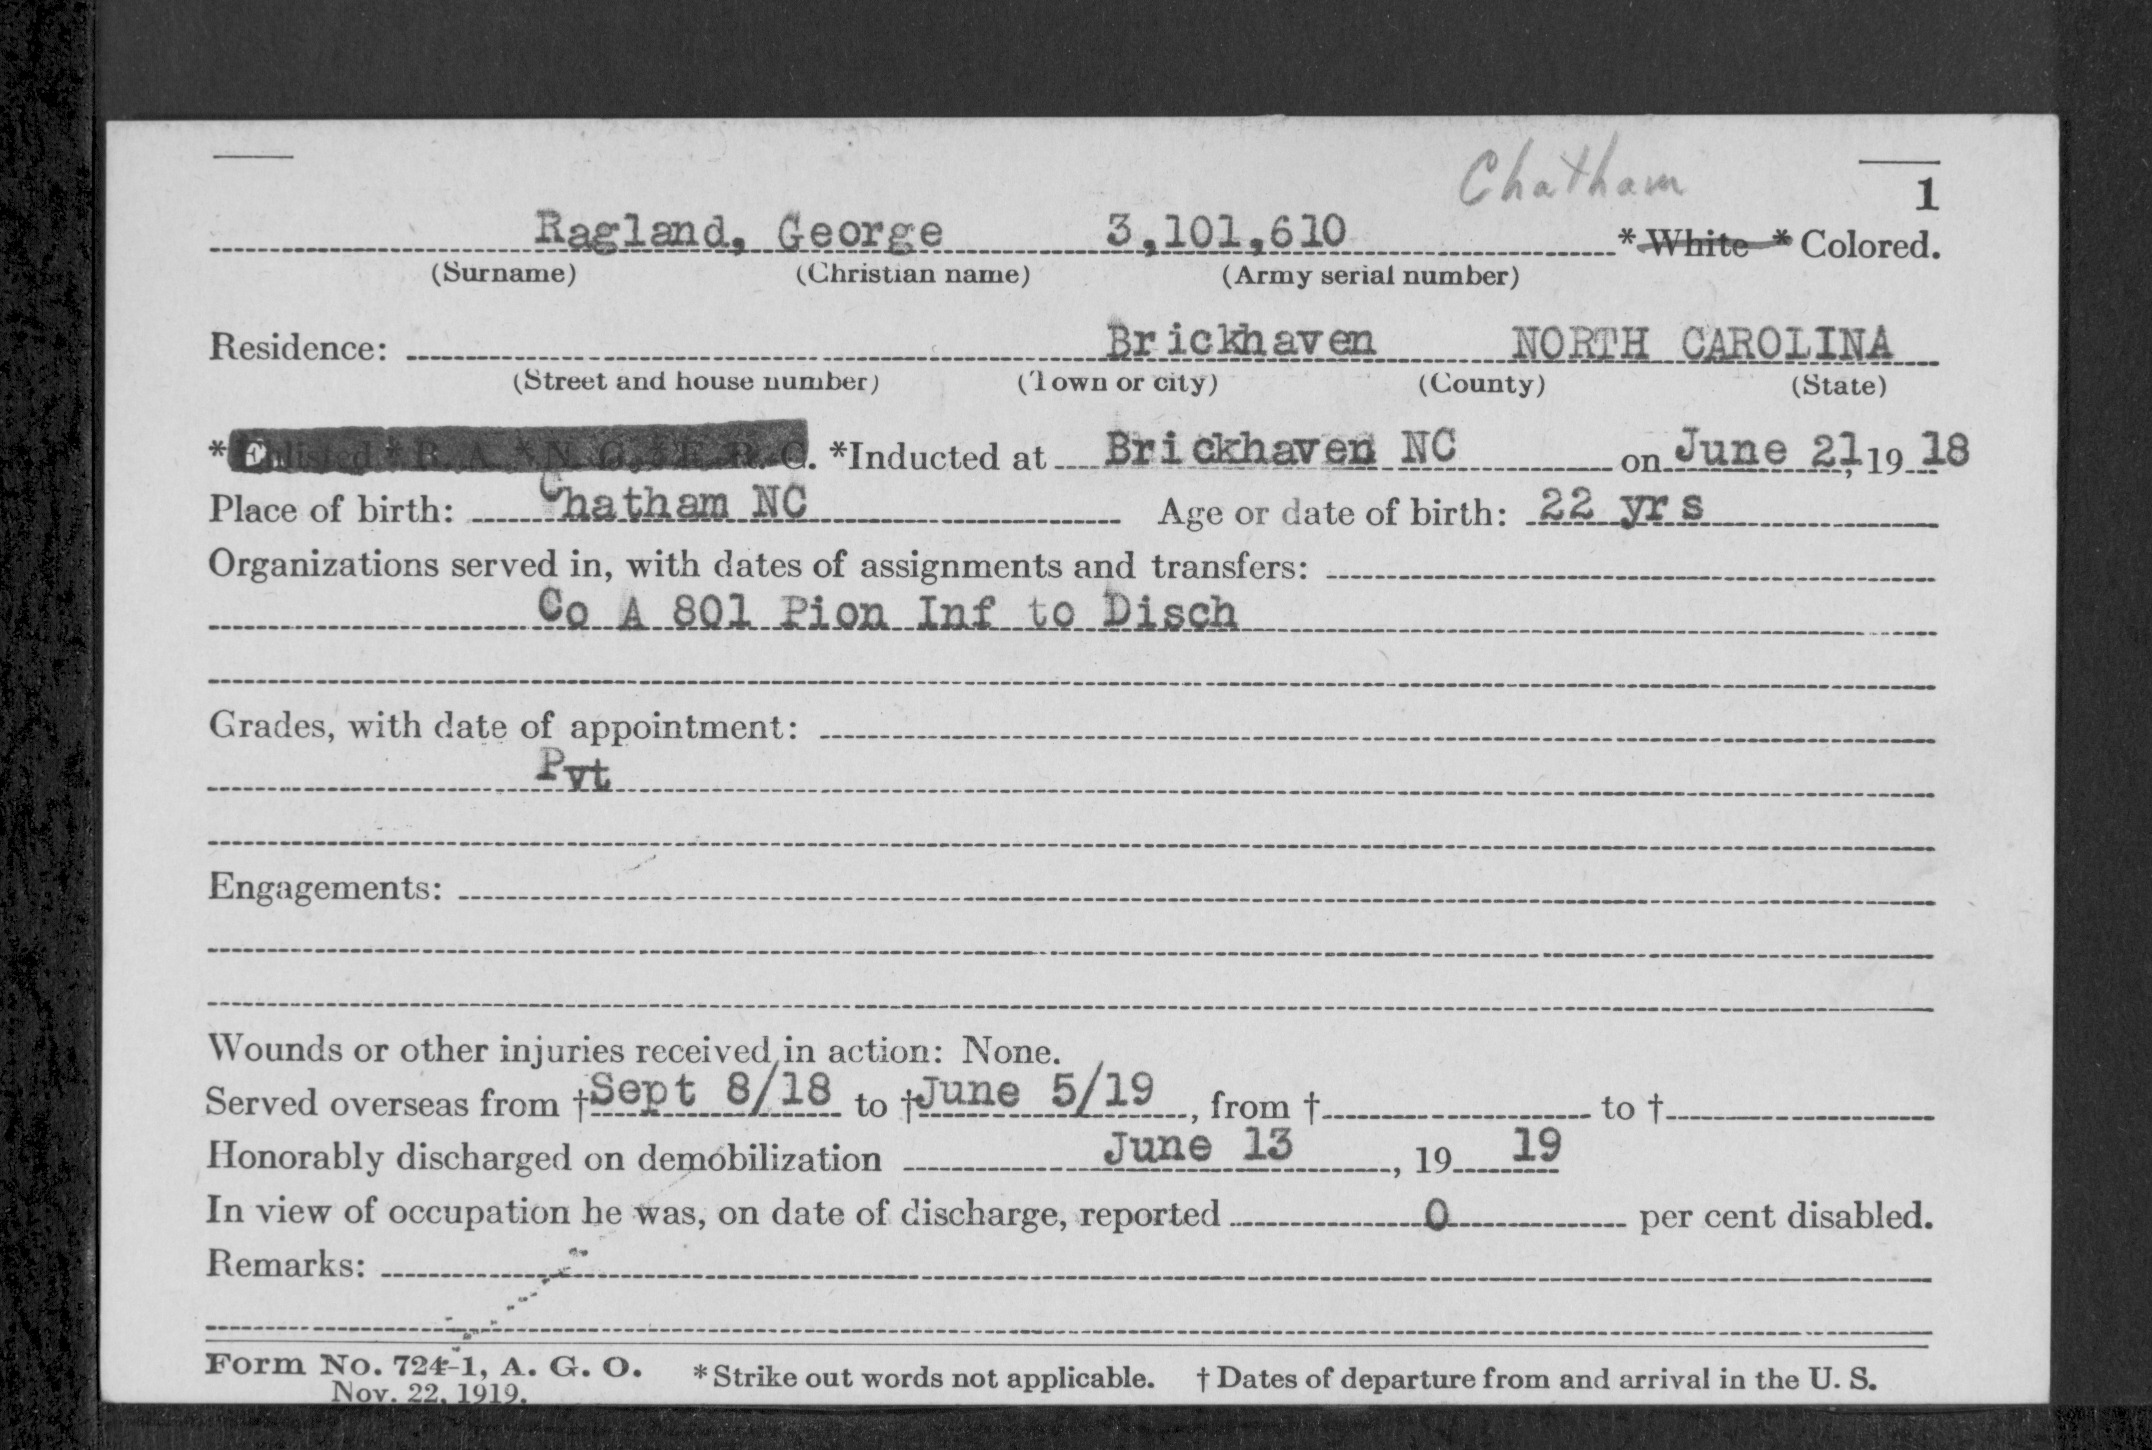 Chatham
1
Ragland, George 3,101,610 * White * Colored.
(Surname) (Christian name) (Army serial number)
Residence: Brickhaven NORTH CAROLINA
(Street and house number) (Town or city) (County) (State)
* Enlisted * R. A. * N. G. * E. R. C. *Inducted at Brickhaven NC on June 21, 19 18
Place of birth: Chatham NC Age or date of birth: 22 yrs
Organizations served in, with dates of assignments and transfers:
Co A 801 Pion Inf to Disch
Grades, with date of appointment:
Pvt
Engagements:
Wounds or other injuries received in action: None.
Served overseas from †Sept 8/18 to †June 5/19, from † to †
Honorably discharged on demobilization June 13, 19 19
In view of occupation he was, on date of discharge, reported 0 per cent disabled.
Remarks:
Form No. 724-1, A. G. O. *Strike out words not applicable. † Dates of departure from and arrival in the U. S.
Nov. 22, 1919.